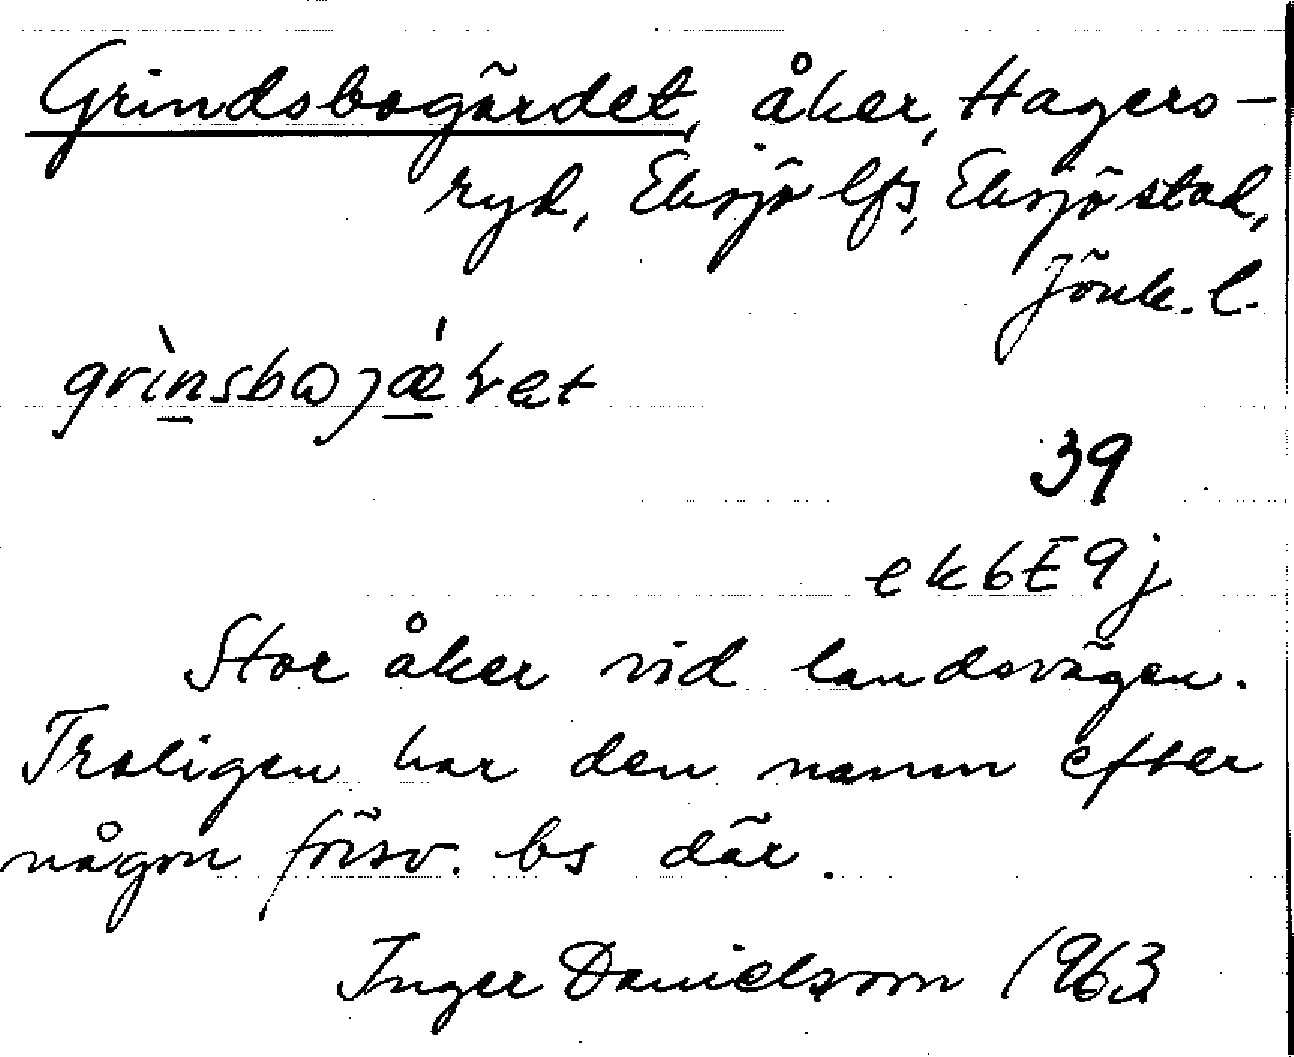 Grindsbogärdet, åker, Hagers-
ryd, Eksjö lfs, Eksjö stad,
Jönk. l.
39
ek 6E9j
Stor åker vid landsvägen.
Troligen har den namn efter
någon försv. bs där.
Inger Danielsson 1963